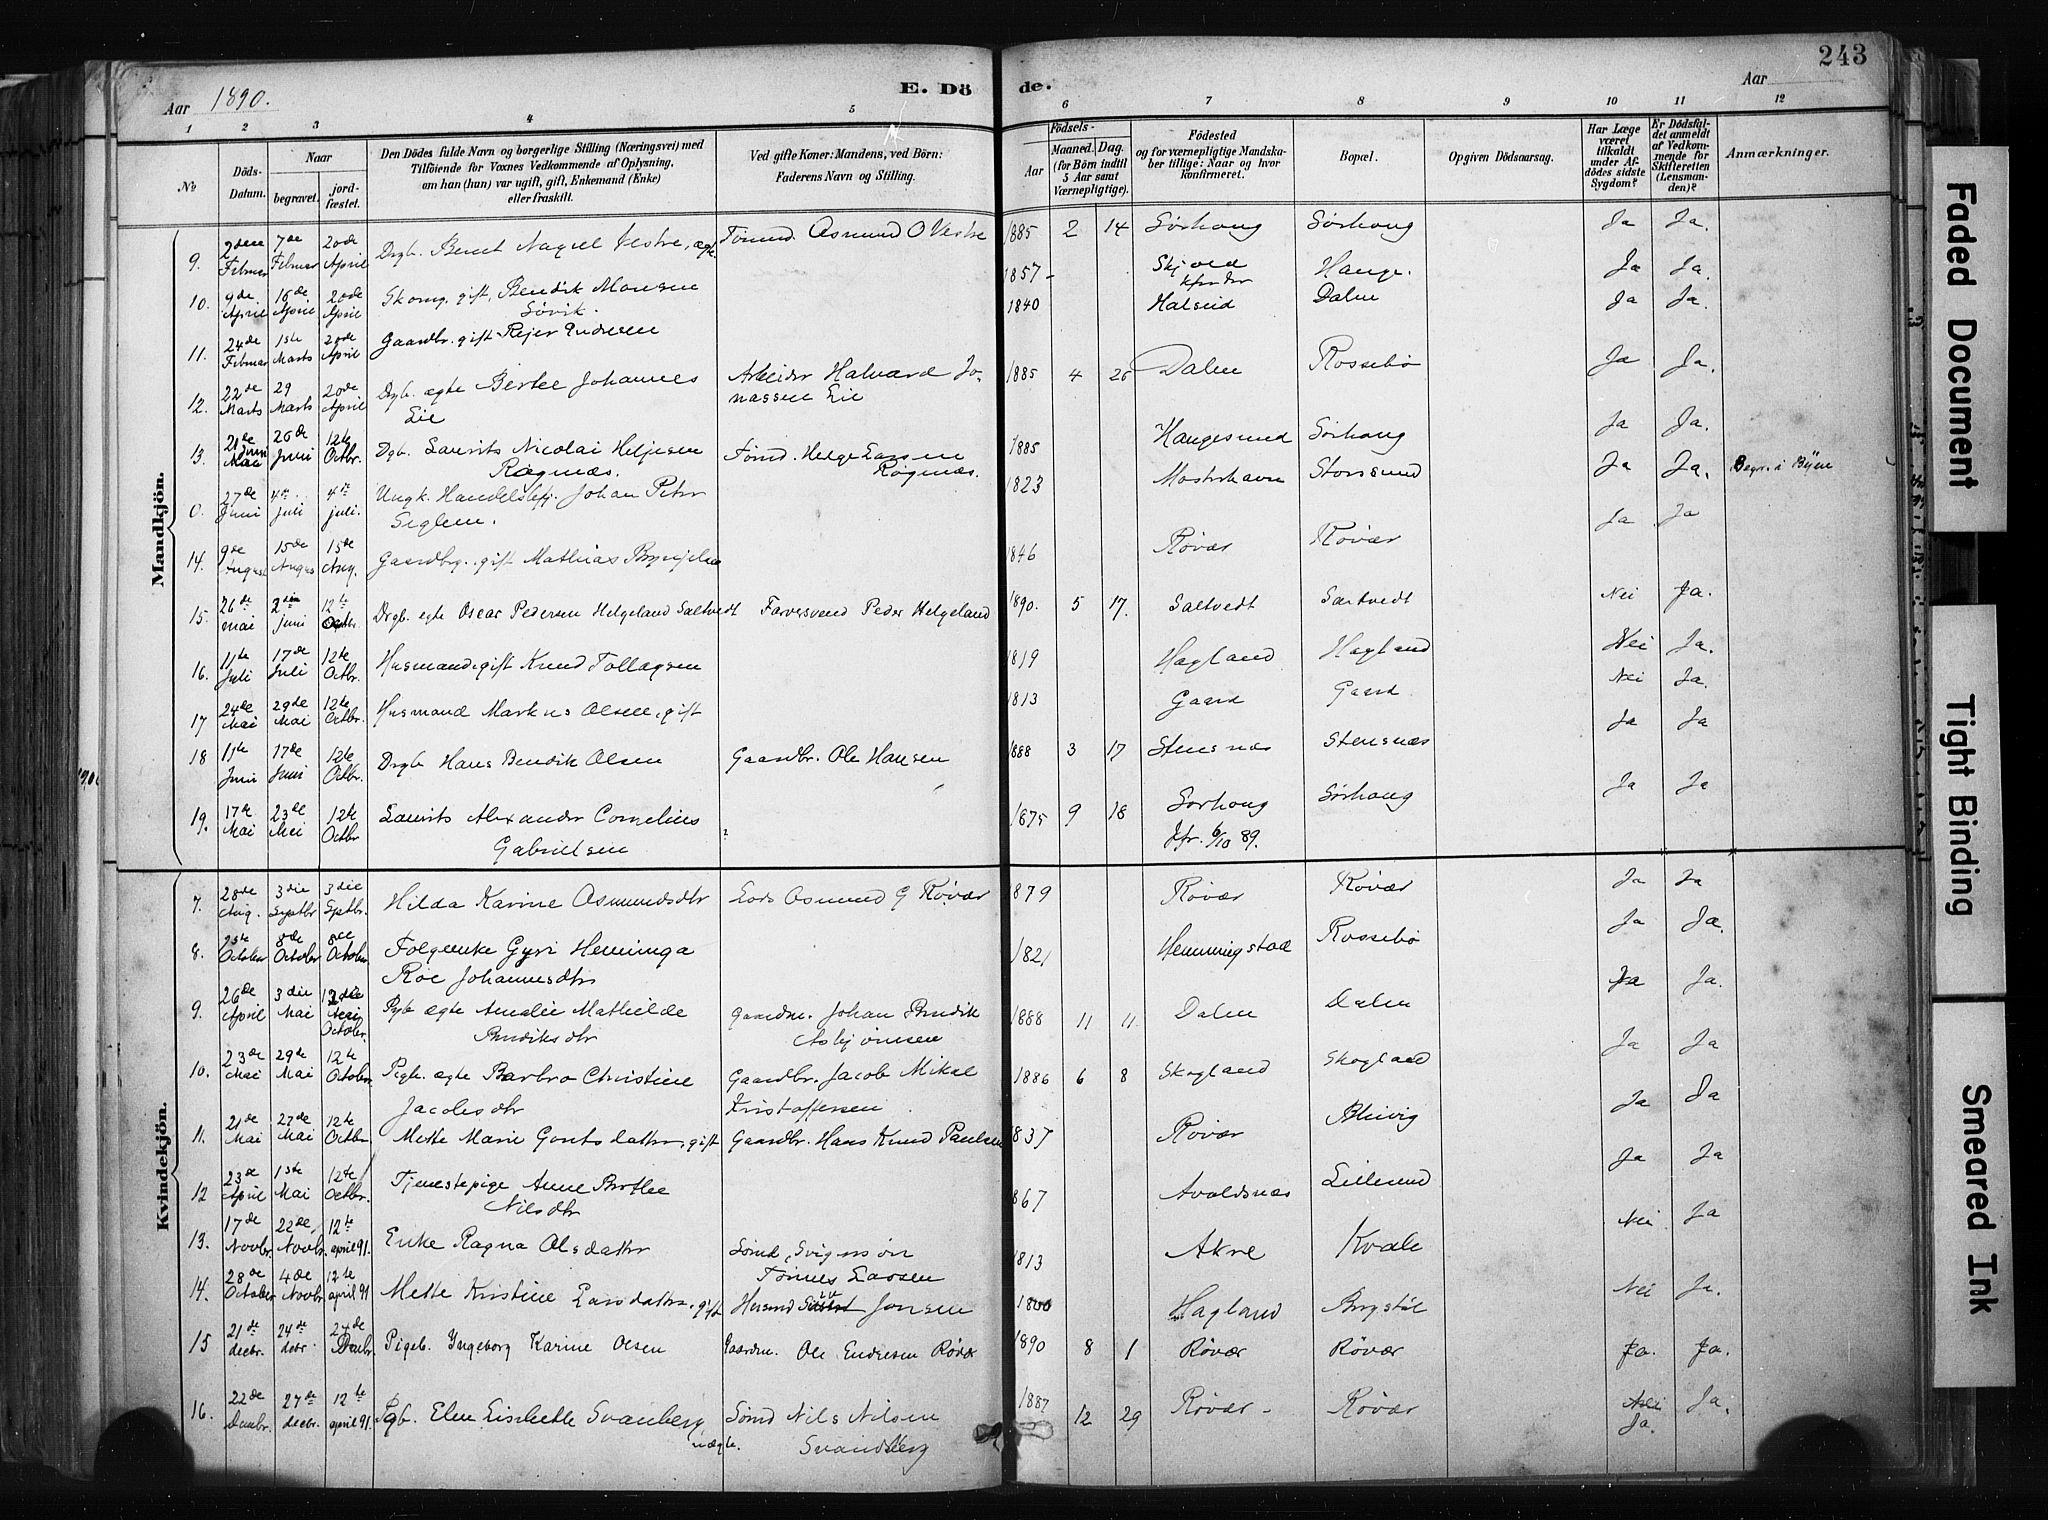 243
Aar 1890.
E. Dö de.
Aar
1 2 3 4 5 6 7 8 9 10 11 12
No
Döds-Datum.
Naar
begravet.
jord-fæstet.
Den Dödes fulde Navn og borgerlige Stilling (Næringsvei) med
Tilföiende for Voxnes Vedkommende af Oplysning,
om han (hun) var ugift, gift, Enkemand (Enke)
eller fraskilt.
Ved gifte Koner: Mandens, ved Börn:
Faderens Navn og Stilling.
Födsels-
Aar
Maaned. Dag.
(for Börn indtil
5 Aar samt
Værnepligtige).
Födested
og for værnepligtige Mandska-
ber tillige: Naar og hvor
konfirmeret.
Bopæl.
Opgiven Dödsaarsag.
Har Læge
været
tilkaldt
under Af-
dödes sidste
Sygdom?
Er Dödsfal-
det anmeldt
af Vedkom-
mende for
Skifteretten
(Lensman-
den)?
Anmærkninger.
Mandkjön.
9. 2den Februar 7de Februar 20de April Drgb. Bernt Nagel Vestre, ægte. Tömmd. Asmund O Vestre 1885 2 14 Sörhaug Sörhaug Ja Ja.
10. 9de April 16de April 20de April Skomg. gift, Bendik Monsen Søvik. 1857 Skjold Hauge. Ja Ja.
11. 24de Februar 1ste Marts 20de April Gaardbr. gift Rejer Endresen 1840 Halseid Dalen Ja Ja.
12. 22de Marts 29 Marts 20de April Drgb. ægte Bertel Johannes Lie Arbeider Halvard Jonassen Lie 1885 4 26 Dalen Rossebø Ja Ja.
13. 21de Juni Mai 26de Juni 12te Octbr. Dgb. Laurits Nicolai Heljesen Røgnæs. Tømd. Helge Larsen Røgnæs. 1885 Haugesund Sørhaug Ja Ja.
0. 27de Juni 4de Juli 4de Juli. Ungk. Handelsbtj. Johan Peter Seglem. 1823 Mosterhavn Storesund Ja Ja. Begr. i Byen
14. 9de August 15de August 15de Aug. Gaardbrg. gift Mathias Brynjelsen 1846 Røvær Røvær Ja Ja
15. 26de Mai 2den Juni 12te Octbr. Drgb. ægte Oscar Pedersen Helgeland Saltvedt Farversvend Peder Helgeland 1890. 5 17. Saltvedt Saltvedt Nei Ja.
16. 11te Juli 17de Juli 12te Octbr. Husmand gift Knud Tollagsen 1819 Hagland Hagland Nei Ja.
17 24de Mai 29de Mai 12te Octbr. Husmand Markus Olsen, gift 1813 Gaard Gaard Nei Ja.
18 11te Juni 17de Juni 12te Octbr. Drgb Hans Bendik Olsen Gaardbr. Ole Hansen 1888 3 17 Stensnæs Stensnæs Ja Ja
19. 17de Mai 23de Mai 12te Octbr Laurits Alexander Cornelius Gabrielsen ? 1875 9 18 Sørhaug Kfr. 6/10 89. Sørhaug Ja Ja
Kvindekjön.
7. 28de Aug. 3die Septbr 3die Septbr. Hilda Karine Asmundsdtr Lods Asmund G Røvær 1879 Røvær Røvær Ja Ja
8. 1ste October 8de October 8de October. Folgeenke Gyri Heminga Roe Johannesdtr 1821 Hemmingstad Rossebø Ja Ja.
9. 26de April 3die Mai 12te October. Pgb ægte Amalie Mathilde Bendiksdtr Gaardm. Johan Bendik Asbjørnsen 1888 11 11 Dalen Dalen Ja Ja.
10. 23de Mai 29de Mai 12te October Pigb. ægte Barbro Christine Jacobsdtr Gaardbr. Jacob Mikal Kristoffersen 1886 6 8 Skogland Skogland Ja Ja
11. 21de Mai 27de Mai 12te Octbr Mette Marie Gautsdatter, gift Gaardbr. Hans Knud Paulsen 1837 Røvær Bleivig Ja Ja
12 23de April 1ste Mai 12te Octbr. Tjenestepige Anne Bertee Nilsdtr 1867 Avaldsnæs Lillesund Ja Ja
13. 17de Novbr. 22de Novbr. 12te april 91. Enke Ragna Olsdatter Sømd, Svigersøn Tønnes Larsen 1813 Akre Kvale Nei Ja
14. 28de October 4de Novbr. 12te april 91 Mette Kristine Larsdatter, gift Husmd Jonsen Hagland Nei Ja.
15 21de decbr. 24de debr. 24de Decbr. Pigeb. Yngeborg Karine Olsen Gaardm. Ole Endresen Røvær 1890 8 1 Røvær Røvær Ja. Ja.
16. 22de Decbr. 27de decbr. 12te april 91. Pgb. Elen Lisbette Svanberg uægte. Sømd Nils Nilsen Svandberg 1887 12 29 Røvær Røvær Nei Ja. Ja.
Faded Document
Tight Binding
Smeared Ink